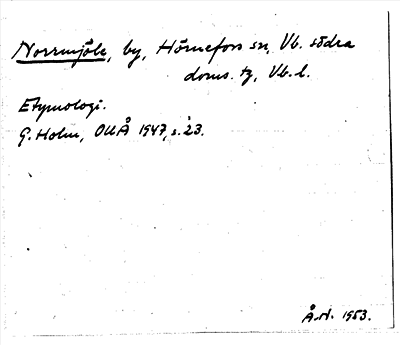 Norrmjöle, by, Hörnefors sn, Vb. södra
doms. tg, Vb. l.
Etymologi.
G. Holm, OUÅ 1947, s. 23.
Å.N. 1953.